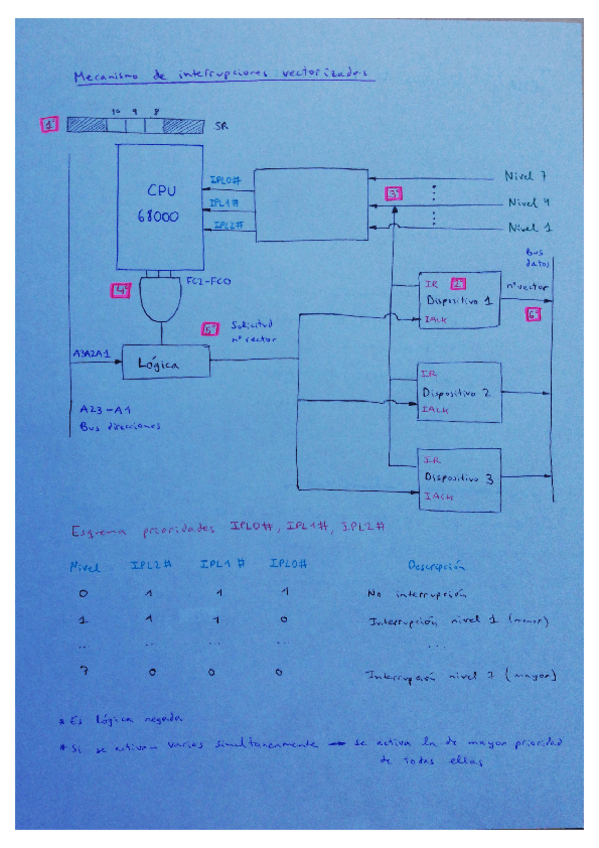 Mecanismo de interrupciones vectorizadas
10 9 8
1º SR
CPU
68000
IPL0#
IPL1#
IPL2#
Nivel 7
3º
Nivel 4
Nivel 1
Bus
datos
4º
FC2-FC0
IR 2º
Dispositivo 1
IACK
nº vector
6º
5º
Solicitud
nº vector
A3A2A1
Lógica
A23-A1
Bus direcciones
IR
Dispositivo 2
IACK
IR
Dispositivo 3
IACK
Esquema prioridades IPL0#, IPL1#, IPL2#
Nivel IPL2# IPL1# IPL0# Descripción
0 1 1 1 No interrupción
1 1 1 0 Interrupción nivel 1 (menor)
... ... ... ...
7 0 0 0 Interrupción nivel 7 (mayor)
* Es lógica negada
* Si se activan varios simultaneamente → se activa la de mayor prioridad
de todas ellas